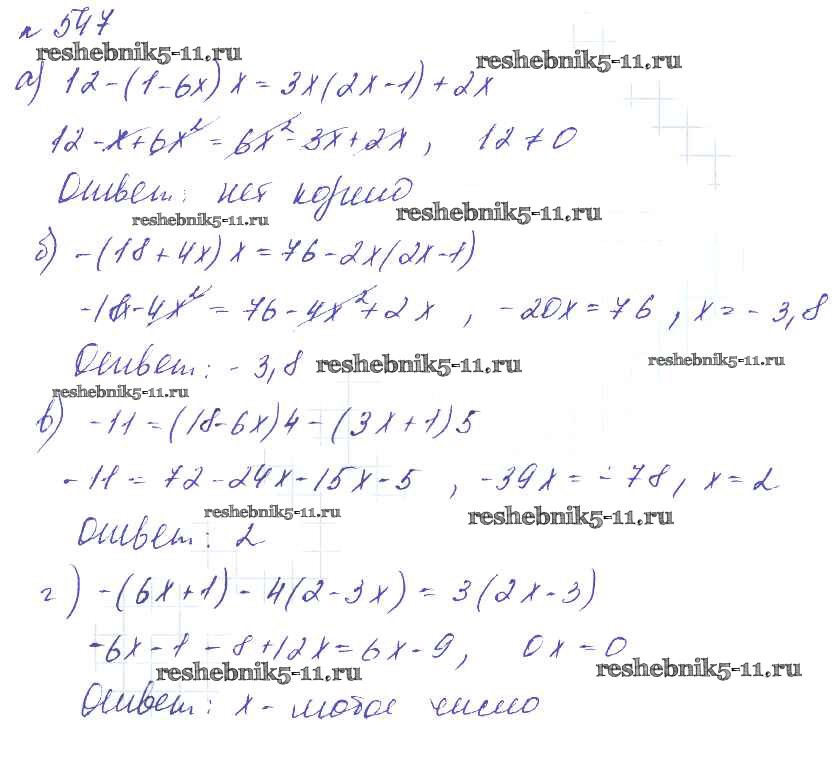 № 547
reshebnik5-11.ru reshebnik5-11.ru
а) 12-(1-6x)x=3x(2x-1)+2x
12-x+6x²=6x²-3x+2x, 12≠0
Ответ: нет корно
reshebnik5-11.ru reshebnik5-11.ru
б) -(18+4x)x=76-2x(2x-1)
-18-4x²=76-4x²+2x, -20x=76, x=-3,8
Ответ: -3,8 reshebnik5-11.ru reshebnik5-11.ru
reshebnik5-11.ru
в) -11=(18-6x)4-(3x+1)5
-11=72-24x-15x-5, -39x=-78, x=2
reshebnik5-11.ru reshebnik5-11.ru
Ответ: 2
г) -(6x+1)-4(2-3x)=3(2x-3)
-6x-1-8+12x=6x-9, 0x=0
reshebnik5-11.ru reshebnik5-11.ru
Ответ: x- число